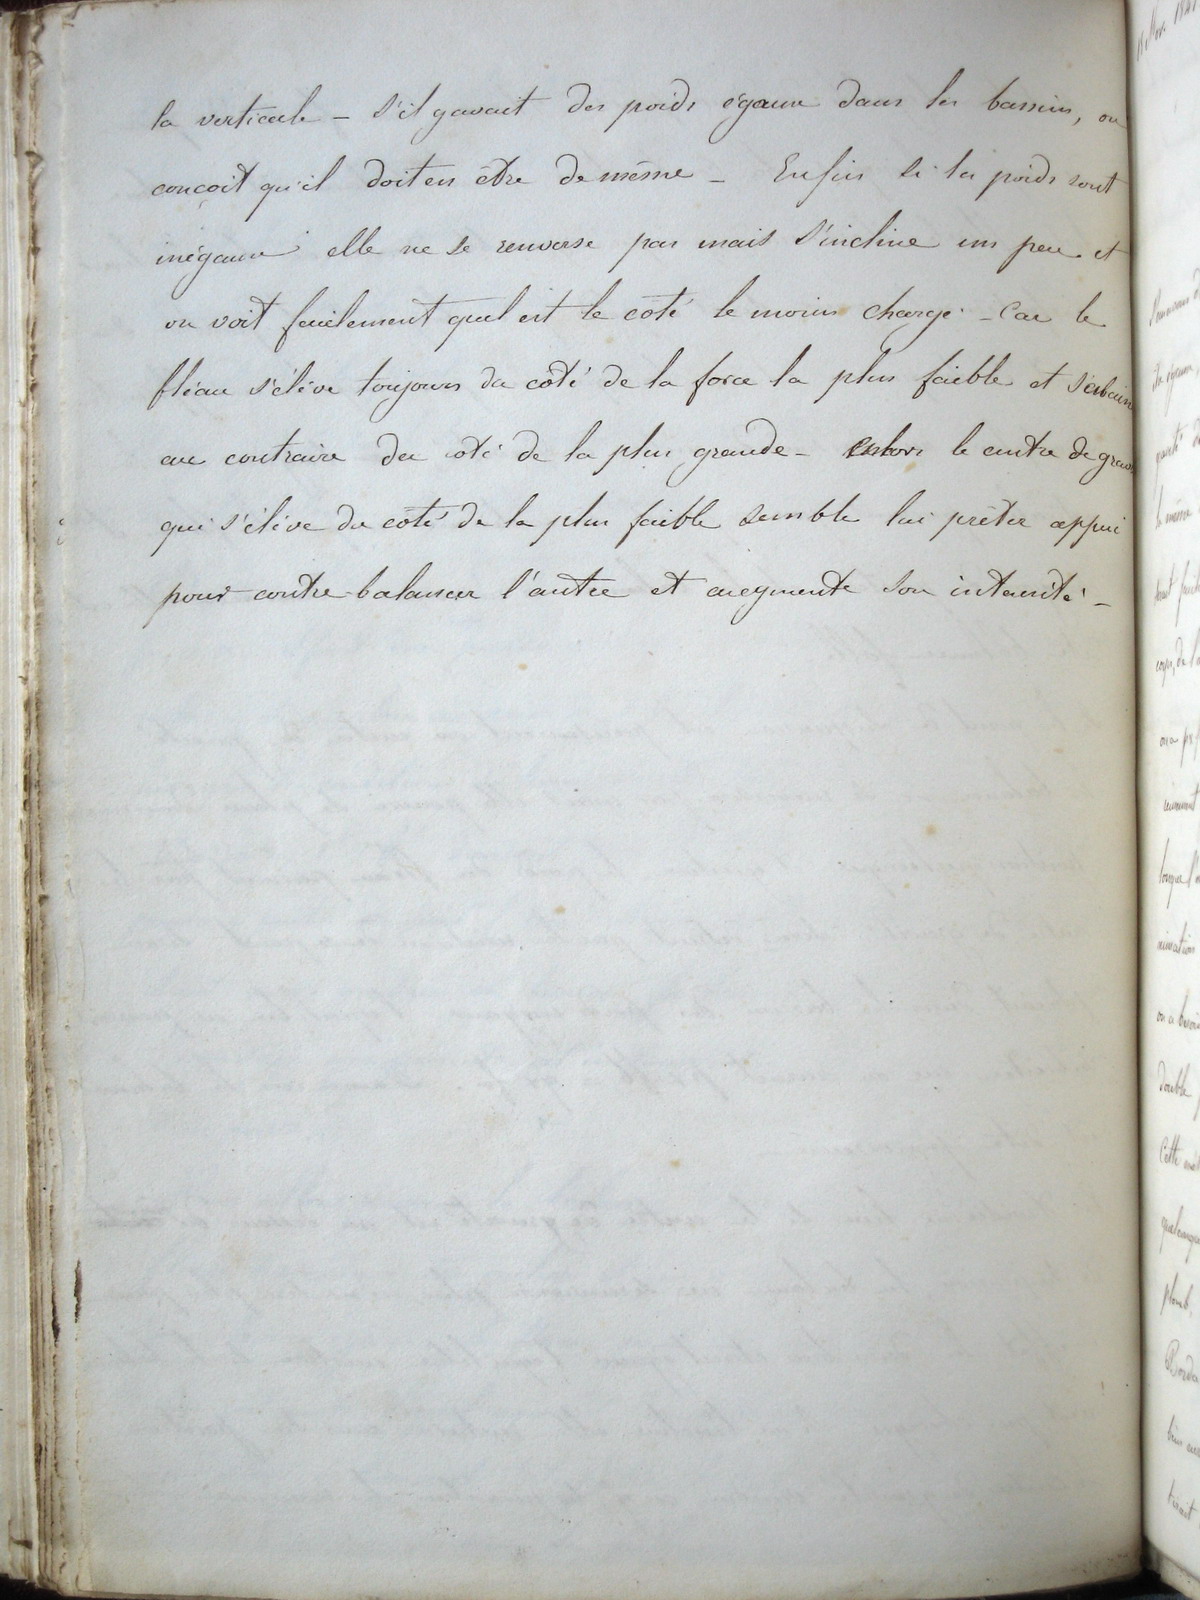 la verticale – S'il y avait des poids égaux dans les bassins, on
conçoit qu'il doit en être de même – Enfin si les poids sont
inégaux elle ne se renverse pas mais s'incline un peu et
on voit facilement quel est le côté le moins chargé – Car le
fléau s'élève toujours du côté de la force la plus faible et s'abaisse
au contraire du côté de la plus grande – le centre de grav
qui s'élève du côté de la plus faible semble lui prêter appui
pour contre-balancer l'autre et augmente son intensité –
11 Nov. 1841
la même
corps, de l'a
on a
lorsque l'
on a besoin
double
Cette mét
quelconque
plomb,
Borda
tirait